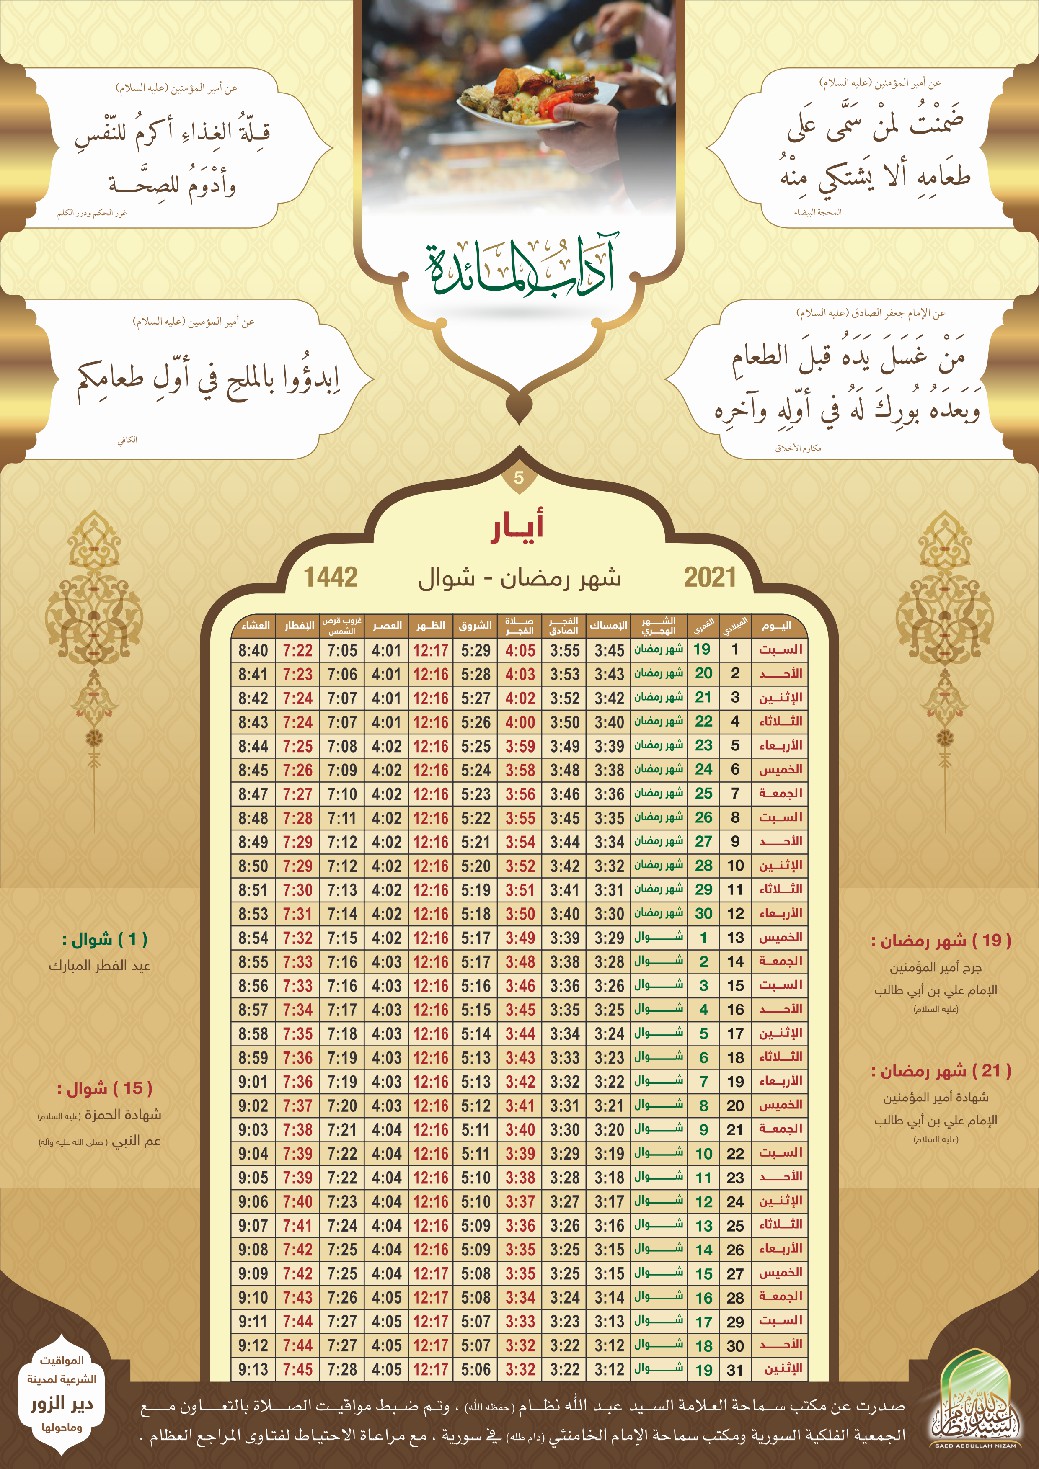 عن أمير المؤمنين (عليه السلام)
ضَمنْتُ لمنْ سَمَّى عَلَى
طعَامِهِ ألا يَشتكي مِنْهُ
المحجة البيضاء
عن أمير المؤمنين (عليه السلام)
قِلّةُ الغِذاءِ أكرمُ للنّفْسِ
وأدْوَمُ للصِحَّة
غرر الحكم ودرر الكلم
آداب المائدة
عن الإمام جعفر الصادق (عليه السلام)
مَنْ غَسَلَ يَدَهُ قبلَ الطعامِ
وَبَعدَهُ بُورِكَ لَهُ في أوّلِهِ وآخرِه
مكارم الأخلاق
عن أمير المؤمنين (عليه السلام)
اِبدؤُوا بالملحِ في أوّلِ طعامِكم
الكافي
5
أيار
2021 شهر رمضان - شوال 1442
اليوم الميلادي القمري الشهر الهجري الإمساك الفجر الصادق صلاة الفجر الشروق الظهر العصر غروب قرص الشمس الإفطار العشاء
السبت 1 19 شهر رمضان 3:45 3:55 4:05 5:29 12:17 4:01 7:05 7:22 8:40
الأحد 2 20 شهر رمضان 3:43 3:53 4:03 5:28 12:16 4:01 7:06 7:23 8:41
الإثنين 3 21 شهر رمضان 3:42 3:52 4:02 5:27 12:16 4:01 7:07 7:24 8:42
الثلاثاء 4 22 شهر رمضان 3:40 3:50 4:00 5:26 12:16 4:01 7:07 7:24 8:43
الأربعاء 5 23 شهر رمضان 3:39 3:49 3:59 5:25 12:16 4:02 7:08 7:25 8:44
الخميس 6 24 شهر رمضان 3:38 3:48 3:58 5:24 12:16 4:02 7:09 7:26 8:45
الجمعة 7 25 شهر رمضان 3:36 3:46 3:56 5:23 12:16 4:02 7:10 7:27 8:47
السبت 8 26 شهر رمضان 3:35 3:45 3:55 5:22 12:16 4:02 7:11 7:28 8:48
الأحد 9 27 شهر رمضان 3:34 3:44 3:54 5:21 12:16 4:02 7:12 7:29 8:49
الإثنين 10 28 شهر رمضان 3:32 3:42 3:52 5:20 12:16 4:02 7:12 7:29 8:50
الثلاثاء 11 29 شهر رمضان 3:31 3:41 3:51 5:19 12:16 4:02 7:13 7:30 8:51
الأربعاء 12 30 شهر رمضان 3:30 3:40 3:50 5:18 12:16 4:02 7:14 7:31 8:53
الخميس 13 1 شوال 3:29 3:39 3:49 5:17 12:16 4:02 7:15 7:32 8:54
الجمعة 14 2 شوال 3:28 3:38 3:48 5:17 12:16 4:03 7:16 7:33 8:55
السبت 15 3 شوال 3:26 3:36 3:46 5:16 12:16 4:03 7:16 7:33 8:56
الأحد 16 4 شوال 3:25 3:35 3:45 5:15 12:16 4:03 7:17 7:34 8:57
الإثنين 17 5 شوال 3:24 3:34 3:44 5:14 12:16 4:03 7:18 7:35 8:58
الثلاثاء 18 6 شوال 3:23 3:33 3:43 5:13 12:16 4:03 7:19 7:36 8:59
الأربعاء 19 7 شوال 3:22 3:32 3:42 5:13 12:16 4:03 7:19 7:36 9:01
الخميس 20 8 شوال 3:21 3:31 3:41 5:12 12:16 4:03 7:20 7:37 9:02
الجمعة 21 9 شوال 3:20 3:30 3:40 5:11 12:16 4:04 7:21 7:38 9:03
السبت 22 10 شوال 3:19 3:29 3:39 5:11 12:16 4:04 7:22 7:39 9:04
الأحد 23 11 شوال 3:18 3:28 3:38 5:10 12:16 4:04 7:22 7:39 9:05
الإثنين 24 12 شوال 3:17 3:27 3:37 5:10 12:16 4:04 7:23 7:40 9:06
الثلاثاء 25 13 شوال 3:16 3:26 3:36 5:09 12:16 4:04 7:24 7:41 9:07
الأربعاء 26 14 شوال 3:15 3:25 3:35 5:09 12:16 4:04 7:25 7:42 9:08
الخميس 27 15 شوال 3:15 3:25 3:35 5:08 12:17 4:04 7:25 7:42 9:09
الجمعة 28 16 شوال 3:14 3:24 3:34 5:08 12:17 4:05 7:26 7:43 9:10
السبت 29 17 شوال 3:13 3:23 3:33 5:07 12:17 4:05 7:27 7:44 9:11
الأحد 30 18 شوال 3:12 3:22 3:32 5:07 12:17 4:05 7:27 7:44 9:12
الإثنين 31 19 شوال 3:12 3:22 3:32 5:06 12:17 4:05 7:28 7:45 9:13
( 19 ) شهر رمضان :
جرح أمير المؤمنين
الإمام علي بن أبي طالب
(عليه السلام)
( 21 ) شهر رمضان :
شهادة أمير المؤمنين
الإمام علي بن أبي طالب
(عليه السلام)
( 1 ) شوال :
عيد الفطر المبارك
( 15 ) شوال :
شهادة الحمزة (عليه السلام)
عم النبي (صلى الله عليه وآله)
المواقيت
الشرعية لمدينة
دير الزور
وماحولها
صدرت عن مكتب سماحة العلامة السيد عبد الله نظام (حفظه الله) ، وتم ضبط مواقيت الصلاة بالتعاون مع
الجمعية الفلكية السورية ومكتب سماحة الإمام الخامنئي (دام ظله) في سورية ، مع مراعاة الاحتياط لفتاوى المراجع العظام .
SAED ABDULLAH NIZAM